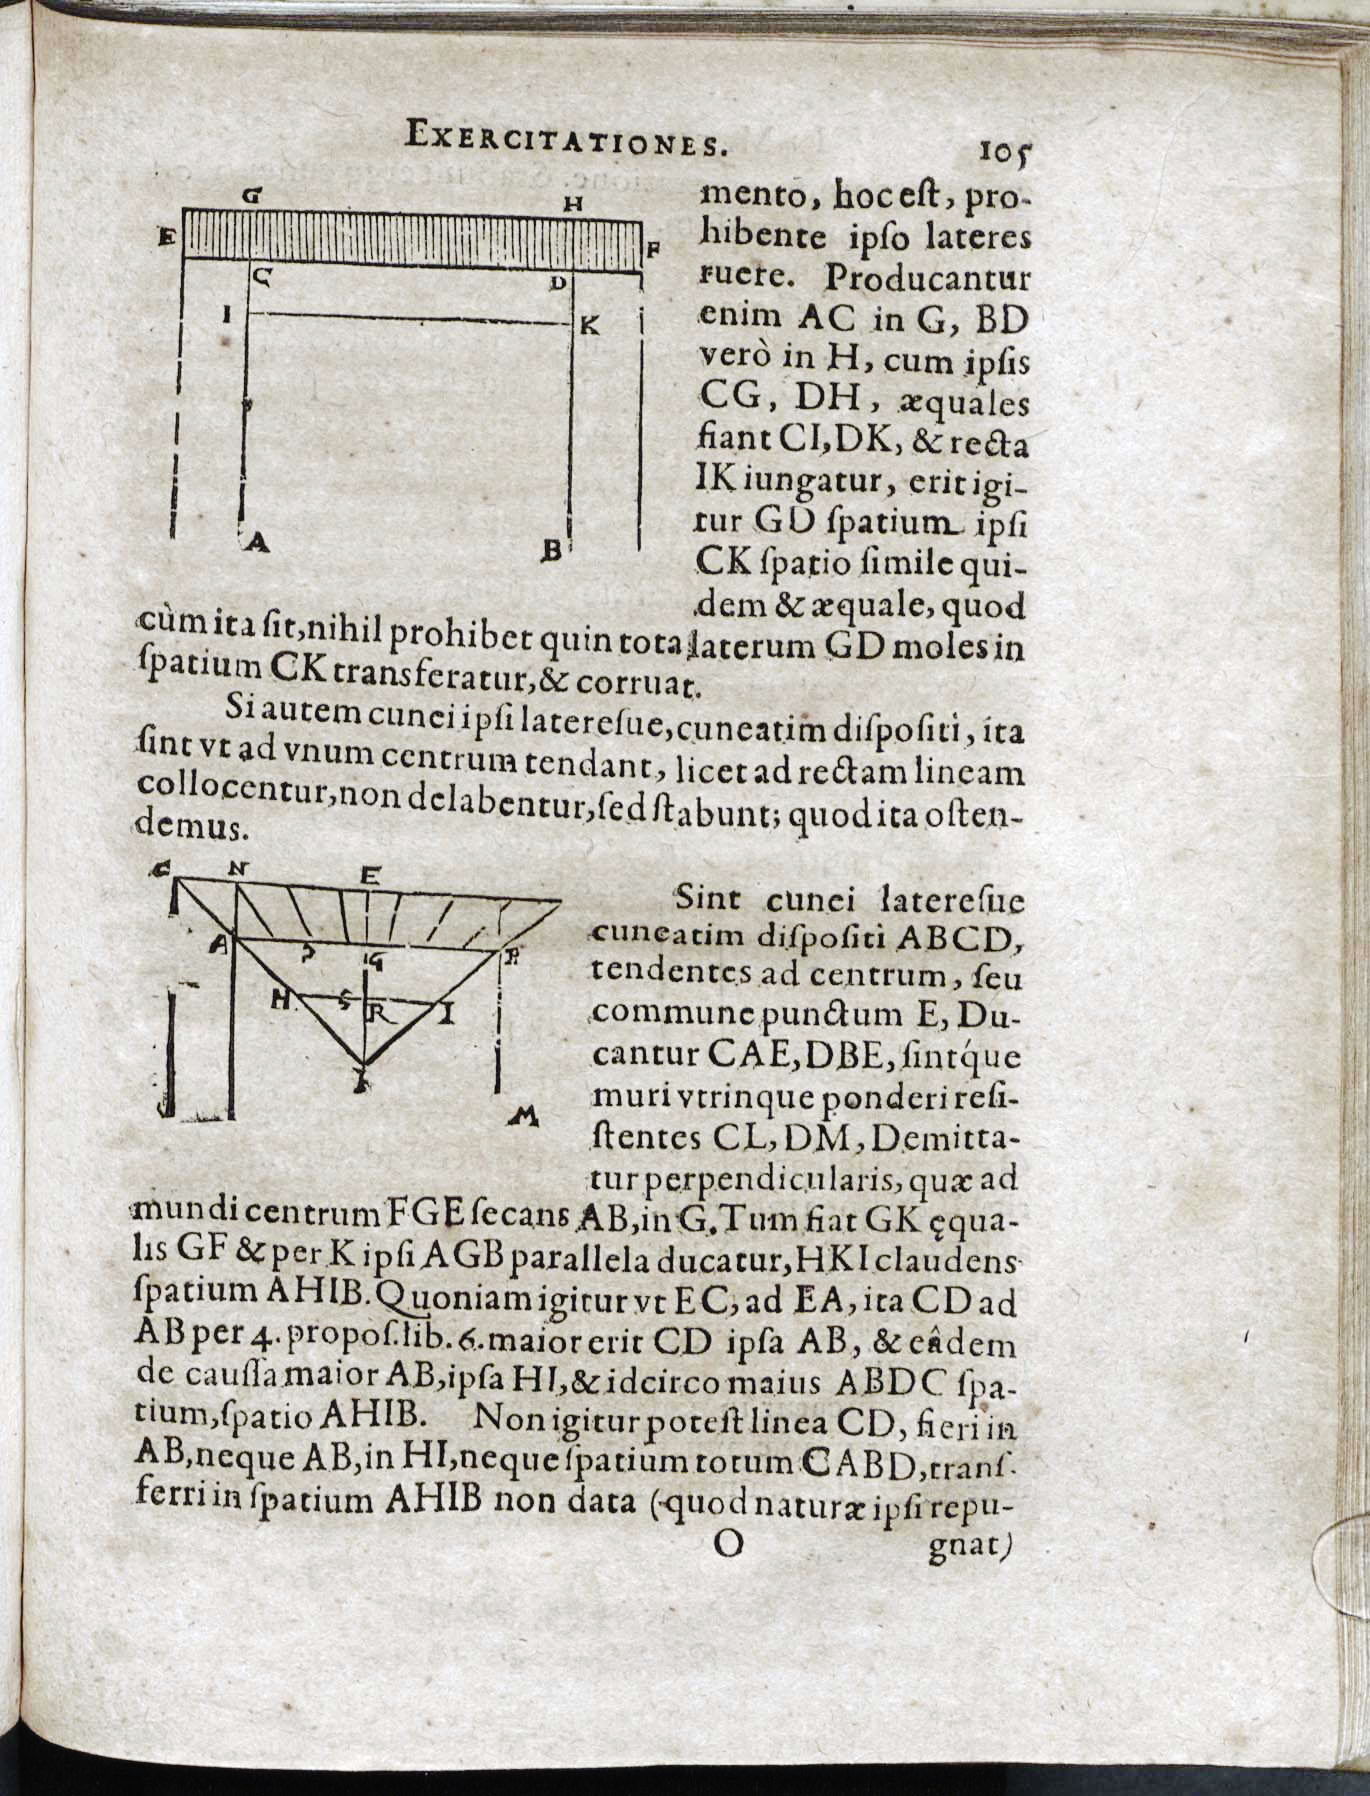 EXERCITATIONES. 105
G H
E F
C D
I K
A B
mento, hoc eſt, pro-
hibente ipſo lateres
ruere. Producantur
enim AC in G, BD
verò in H, cum ipſis
CG, DH, æquales
fiant CI, DK, & recta
IK iungatur, erit igi-
tur GD ſpatium ipſi
CK ſpatio ſimile qui-
dem & æquale, quod
cùm ita ſit, nihil prohibet quin tota laterum GD moles in
ſpatium CK transferatur, & corruat.
Si autem cunei ipſi latereſue, cuneatim diſpoſiti, ita
ſint vt ad vnum centrum tendant, licet ad rectam lineam
collocentur, non delabentur, ſed ſtabunt; quod ita oſten-
demus.
C N E
A G
H R I
M
Sint cunei latereſue
cuneatim diſpoſiti ABCD,
tendentes ad centrum, ſeu
commune punctum E, Du-
cantur CAE, DBE, ſintq́ue
muri vtrinque ponderi reſi-
ſtentes CL, DM, Demitta-
tur perpendicularis, quæ ad
mundi centrum FGE ſecans AB, in G. Tum fiat GK ęqua-
lis GF & per K ipſi AGB parallela ducatur, HKI claudens
ſpatium AHIB. Quoniam igitur vt EC, ad EA, ita CD ad
AB per 4. propoſ. lib. 6. maior erit CD ipſa AB, & eâdem
de cauſſa maior AB, ipſa HI, & idcirco maius ABDC ſpa-
tium, ſpatio AHIB. Non igitur poteſt linea CD, fieri in
AB, neque AB, in HI, neque ſpatium totum CABD, tranſ-
ferri in ſpatium AHIB non data (quod naturæ ipſi repu-
O gnat)